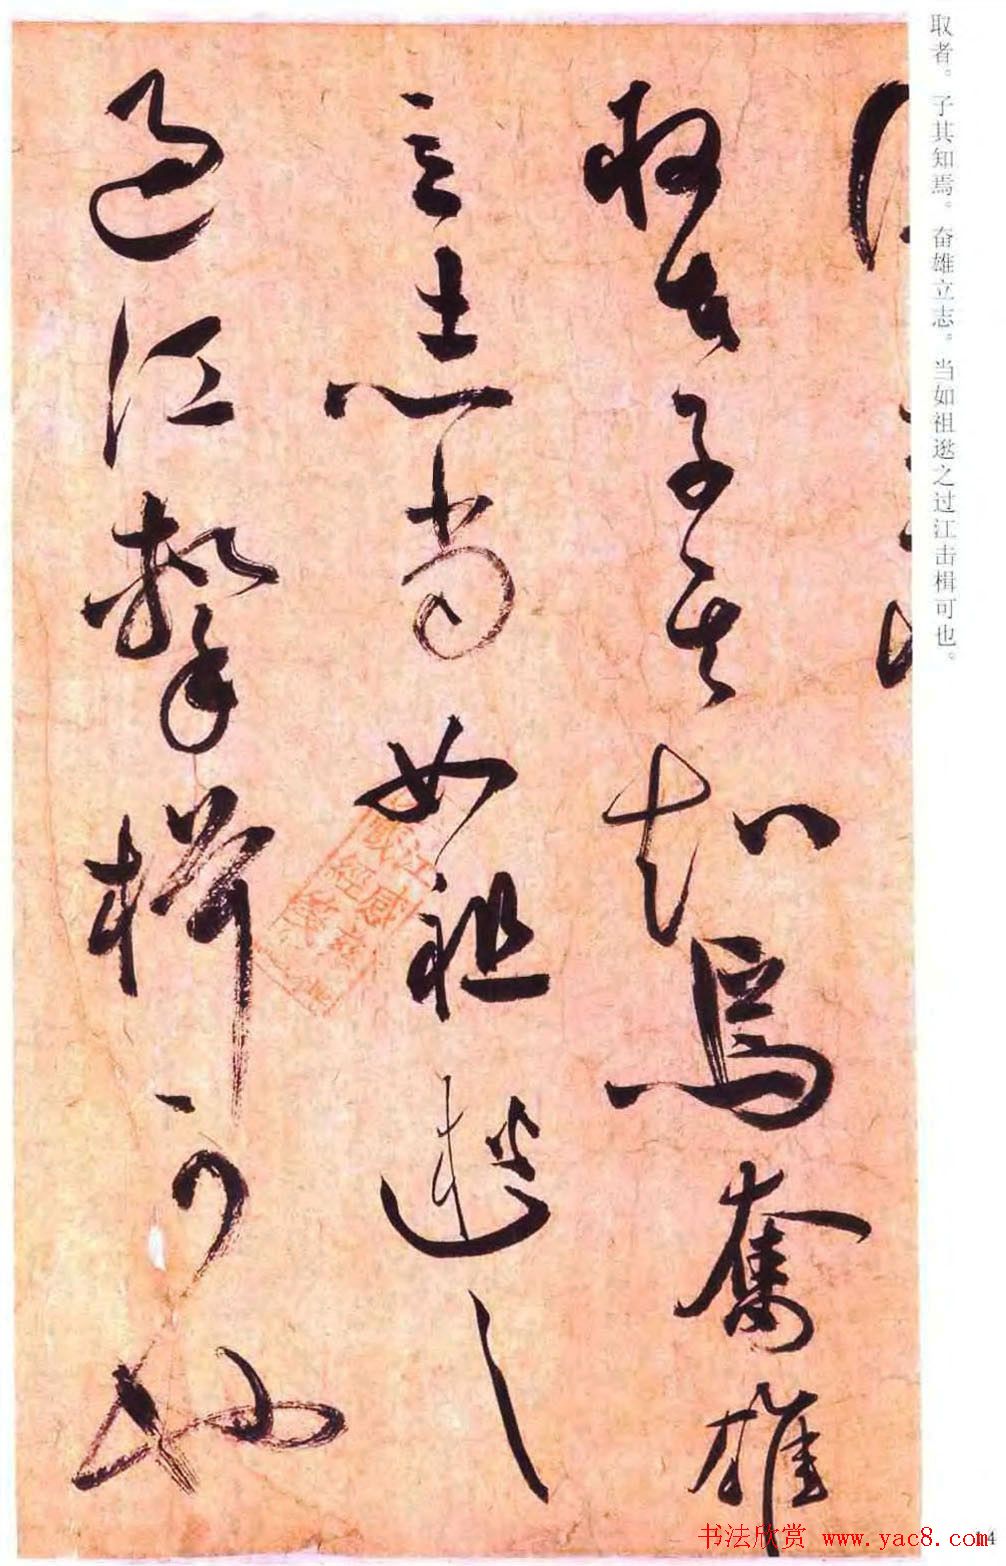 取者子其知焉奮雄
立志当如祖逖之
过江擊楫可也
取者。子其知焉。奋雄立志。当如祖逖之过江击楫可也。
书法欣赏 www.yac8.com
14